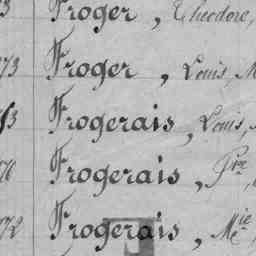 3 Froger, Theodore,
73 Froger, Louis, M
73 Frogerais, Louis,
76 Frogerais, Pre
72 Frogerais, Mie,